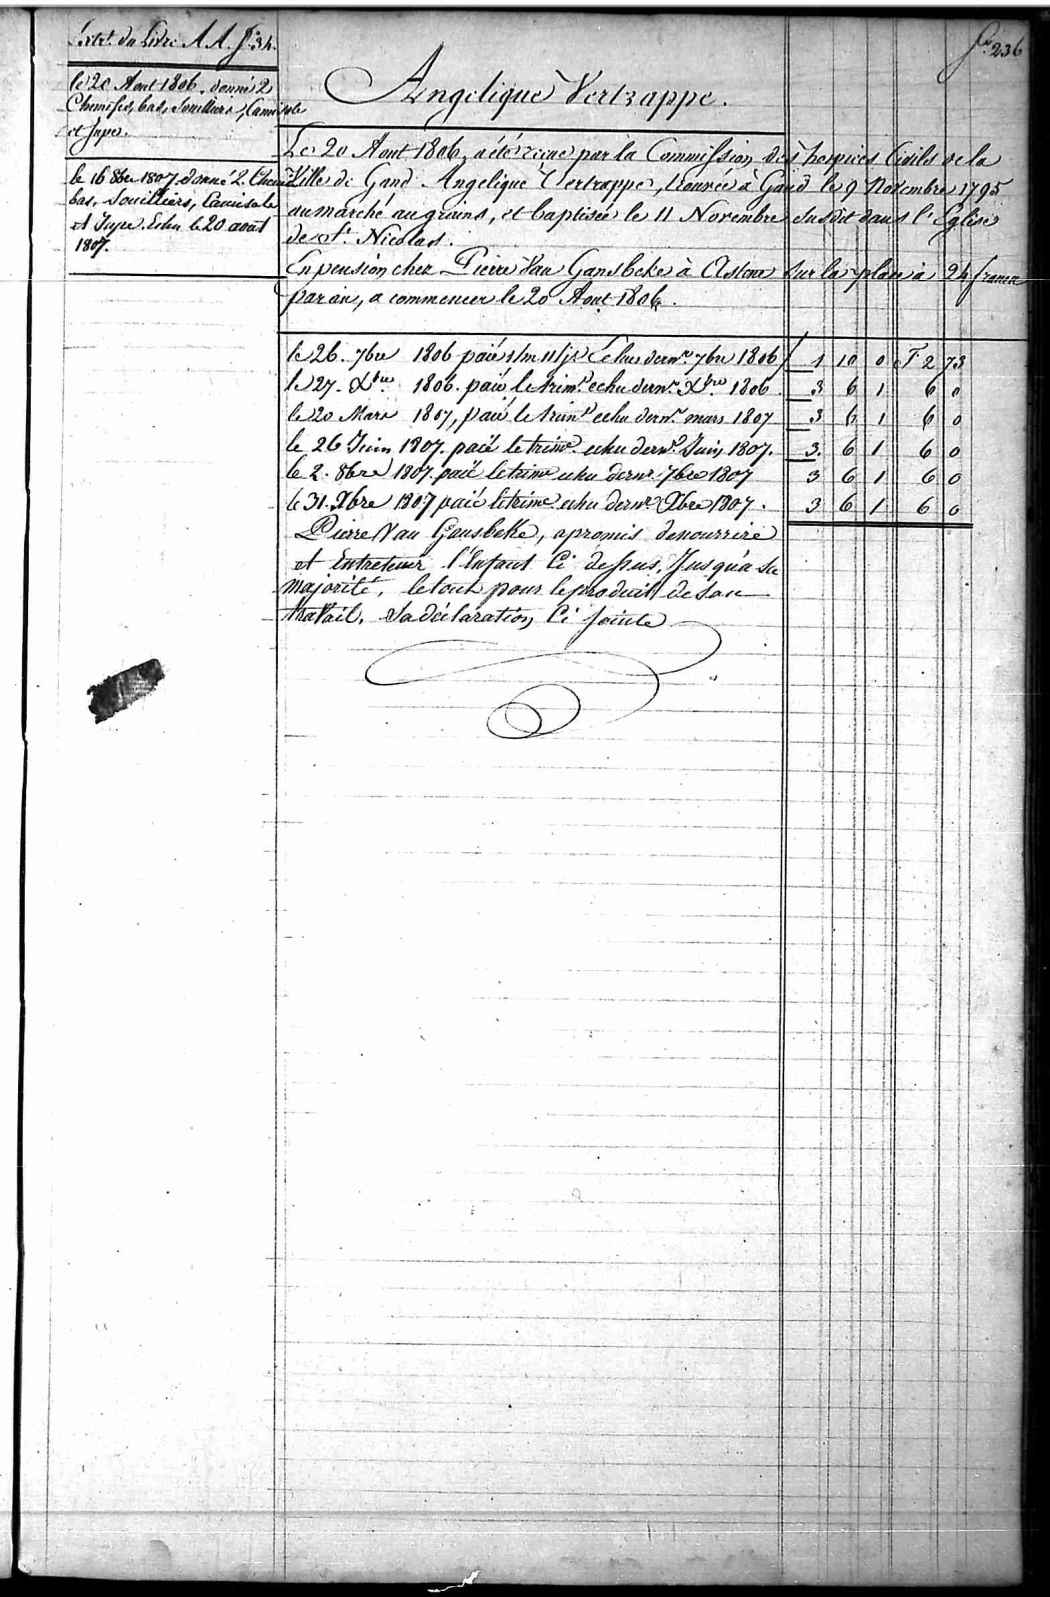 fo. 236
Extrt. du Livre A A. fo. 34.
le 20 Aout 1806. donné 2
Chemises, bas, Souilliers, Camisole
et Jupe.
le 16 8bre 1807 donné 2. Chem
bas, Souilliers, Camisole
et Jupe. Echu le 20 août
1807.
Angelique Vertrappe.
Le 20 Aout 1806, a été reçue par la Commission des hospices Civiles de la
Ville de Gand Angelique Vertrappe, trouvée à Gand le 9 Novembre 1795
au marché au grains, et baptisée le 11 Novembre susdit dans l'Eglise
de St. Nicolas.
En pension chez Pierre Van Gansbeke à sur la place à 24 francs
par an, a commencer le 20 Aout 1806.
le 26. 7bre 1806 paié 1/m 11/js Echus dernr. 7bre 1806 1 10 0 F 2 73
le 27. Xbre 1806. paié le trime. echu dernr. Xbre 1806 3 6 1 6 0
le 20 Mars 1807, paié le trime. echu dernr. mars 1807 3 6 1 6 0
le 26 Juin 1807. paié le trime. echu dernr. Juin 1807. 3. 6 1 6 0
le 2. 8bre 1807. paié le trime echu dernr 7bre 1807 3 6 1 6 0
le 31. Xbre 1807 paié le trime echu dernr Xbre 1807. 3 6 1 6 0
Pierre Van Gansbeke, a promis de nourrire
et Entretenir l'Enfant Ci dessus, Jusqu'a sa
majorité, le tout pour le produit de son
travail, Sa déclaration Ci jointe